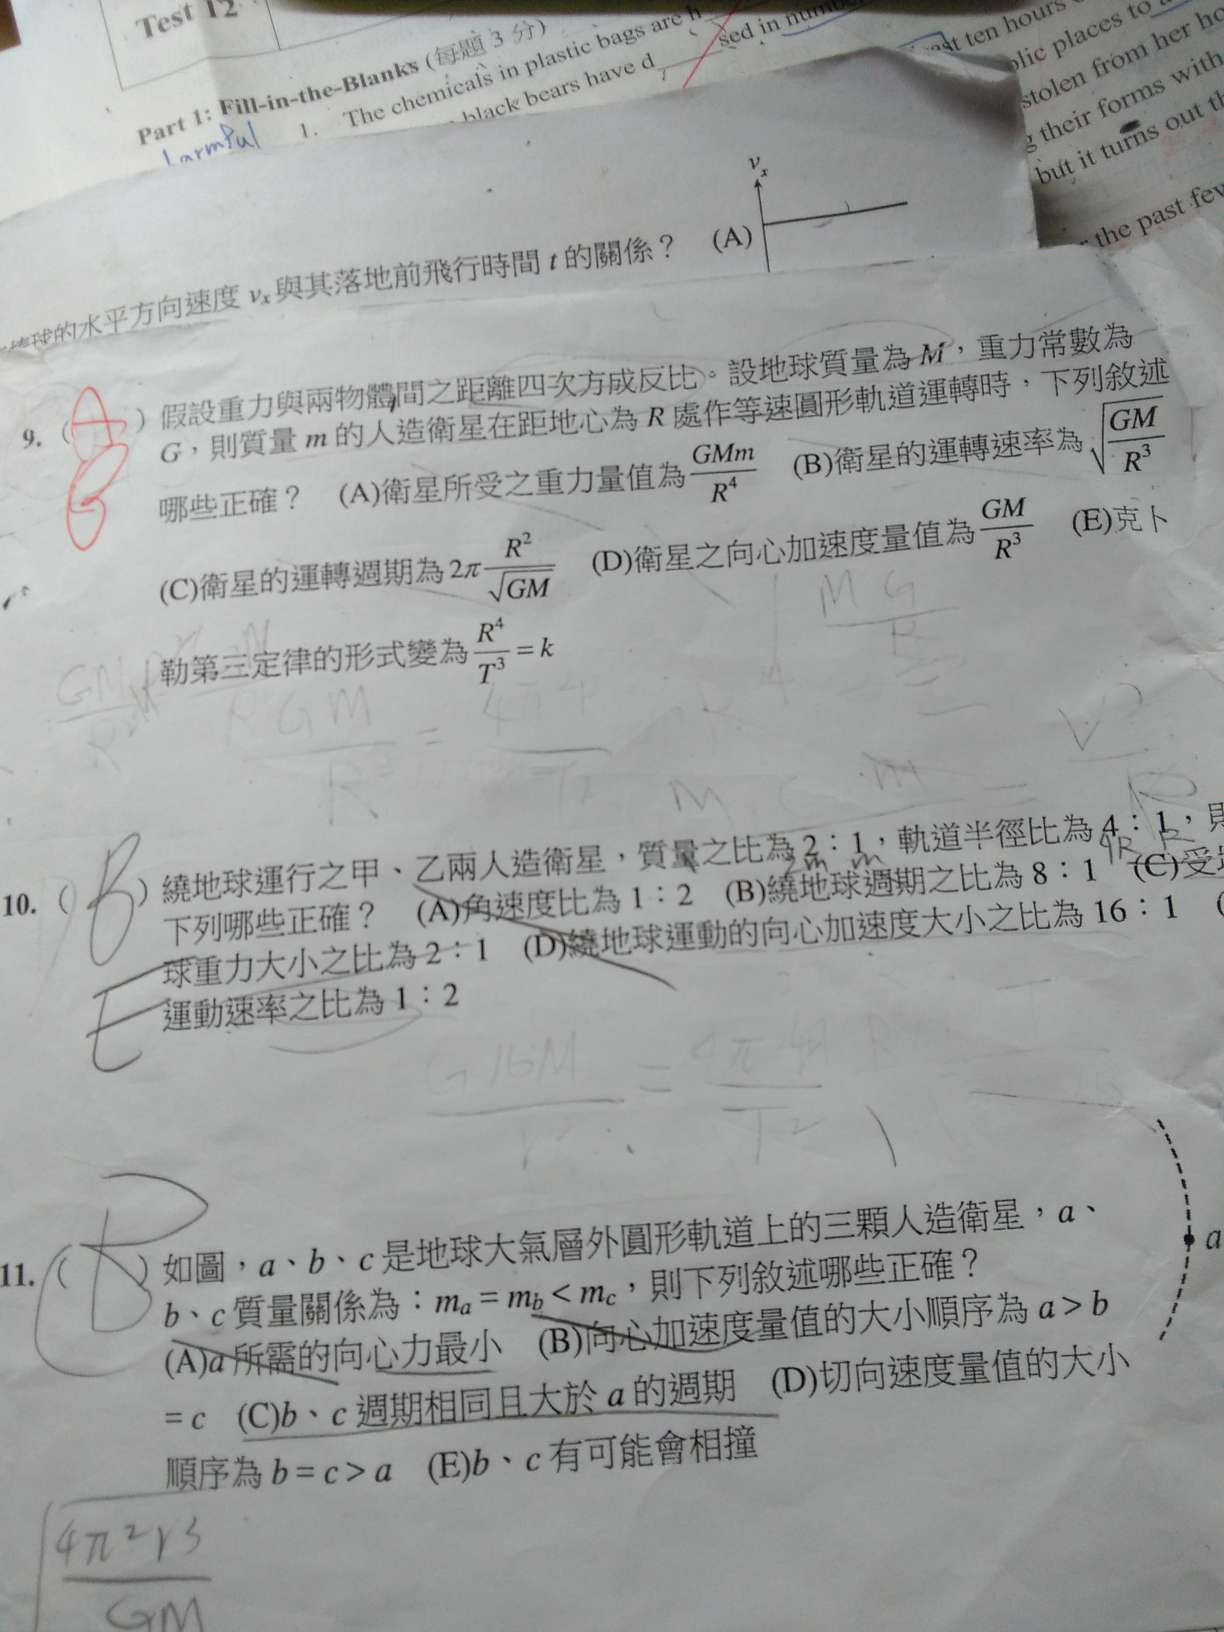 Test 12
Part 1: Fill-in-the-Blanks (每題 3 分)
harmful
1. The chemicals in plastic bags are h
sed in
black bears have d
ast ten hours
blic places to
stolen from her
g their forms with
but it turns out
the past few
球的水平方向速度 vₓ 與其落地前飛行時間 t 的關係？ (A)
vₓ
9. ( A ) 假設重力與兩物體間之距離四次方成反比。設地球質量為 M，重力常數為
G，則質量 m 的人造衛星在距地心為 R 處作等速圓形軌道運轉時，下列敘述
哪些正確？ (A)衛星所受之重力量值為 GMm/R⁴ (B)衛星的運轉速率為 √(GM/R³)
(C)衛星的運轉週期為 2π R²/√GM (D)衛星之向心加速度量值為 GM/R³ (E)克卜
勒第三定律的形式變為 R⁴/T³ = k
MG/R
GM/R² = 4π
10. ( B ) 繞地球運行之甲、乙兩人造衛星，質量之比為 2：1，軌道半徑比為 4：1，則
2m m 4R R
下列哪些正確？ (A)角速度比為 1：2 (B)繞地球週期之比為 8：1 (C)受地
球重力大小之比為 2：1 (D)繞地球運動的向心加速度大小之比為 16：1 (
E 運動速率之比為 1：2
G16M = 4π²4R/T²
11. ( D ) 如圖，a、b、c 是地球大氣層外圓形軌道上的三顆人造衛星，a、
a
b、c 質量關係為：mₐ = m_b < m_c，則下列敘述哪些正確？
(A)a 所需的向心力最小 (B)向心加速度量值的大小順序為 a > b
= c (C)b、c 週期相同且大於 a 的週期 (D)切向速度量值的大小
順序為 b = c > a (E)b、c 有可能會相撞
√(4π²r³/GM)